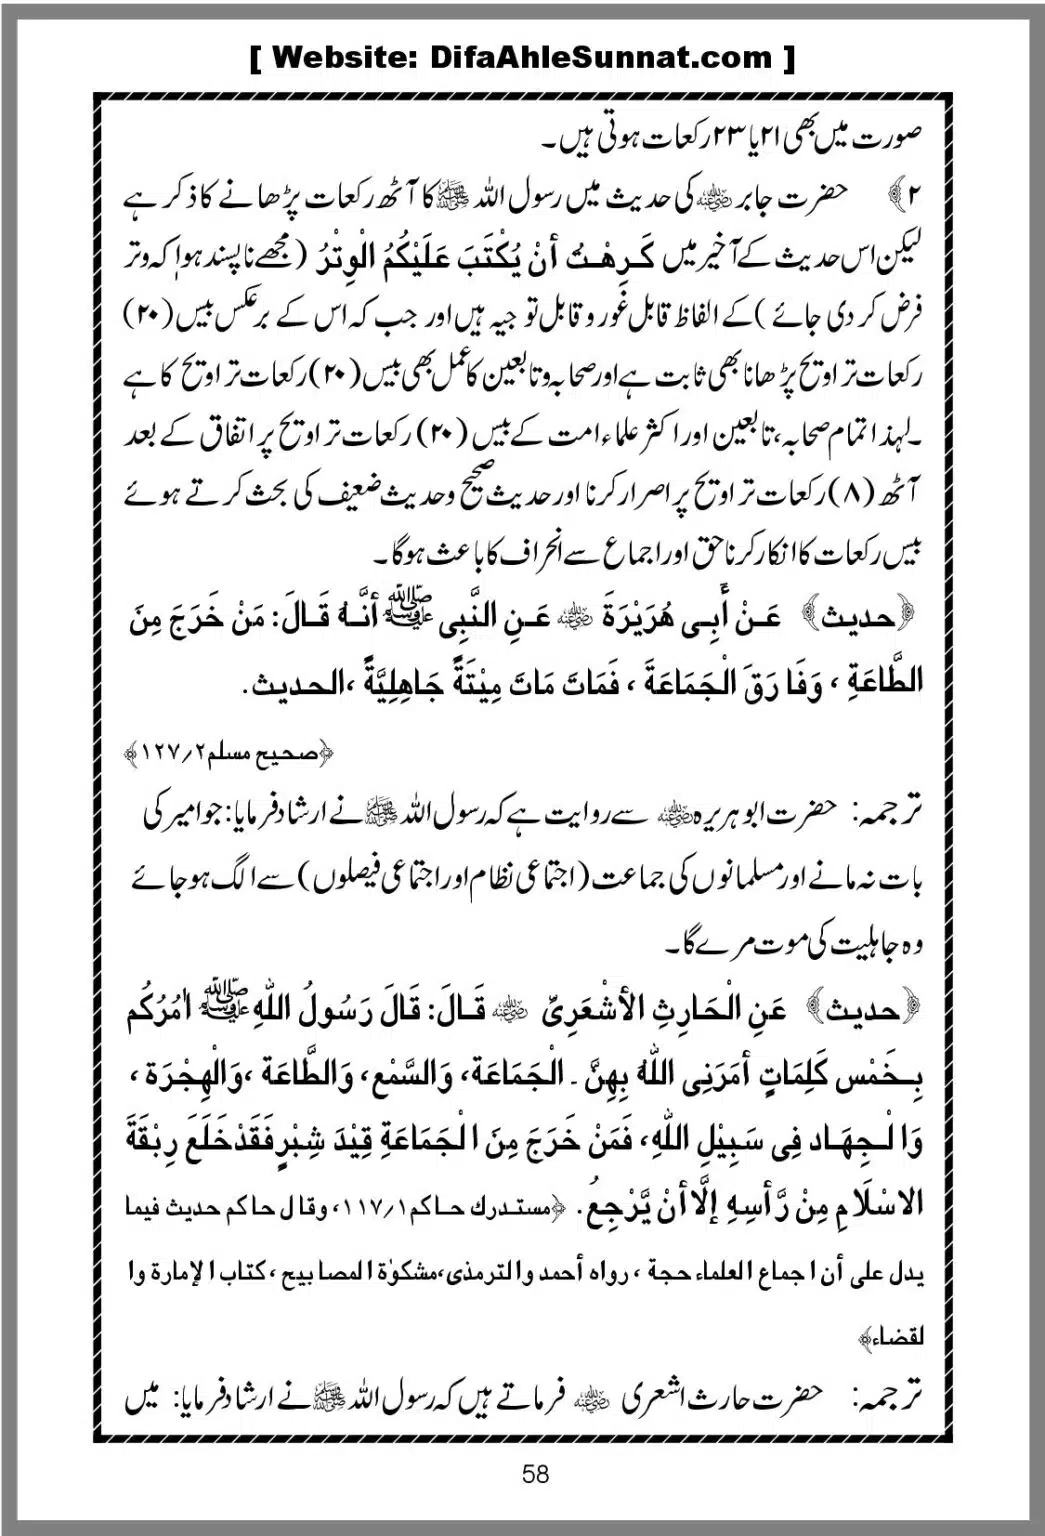 [ Website: DifaAhleSunnat.com ]
صورت میں بھی ۲۱ یا ۲۳ رکعات ہوتی ہیں۔
۲﴾ حضرت جابر رضی اللہ عنہ کی حدیث میں رسول اللہ ﷺ کا آٹھ رکعات پڑھانے کا ذکر ہے
لیکن اس حدیث کے آخیر میں کَرِهْتُ أنْ یُکْتَبَ عَلَیْکُمُ الْوِتْرُ (مجھے ناپسند ہوا کہ وتر
فرض کر دی جائے) کے الفاظ قابل غور و قابل توجیہ ہیں اور جب کہ اس کے برعکس بیس (۲۰)
رکعات تراویح پڑھانا بھی ثابت ہے اور صحابہ و تابعین کا عمل بھی بیس (۲۰) رکعات تراویح کا ہے
۔لہذا تمام صحابہ، تابعین اور اکثر علماء امت کے بیس (۲۰) رکعات تراویح پر اتفاق کے بعد
آٹھ (۸) رکعات تراویح پر اصرار کرنا اور حدیث صحیح وحدیث ضعیف کی بحث کرتے ہوئے
بیس رکعات کا انکار کرنا حق اور اجماع سے انحراف کا باعث ہوگا۔
﴿حدیث﴾ عَنْ أَبِی هُرَیْرَةَ رضی اللہ عنہ عَنِ النَّبِی ﷺ أنَّهُ قَالَ: مَنْ خَرَجَ مِنَ
الطَّاعَةِ ، وَفَا رَقَ الْجَمَاعَةَ ، فَمَاتَ مَاتَ مِیْتَةً جَاهِلِیَّةً ،الحدیث.
﴿صحیح مسلم ۲؍۱۲۷﴾
ترجمہ: حضرت ابوہریرہ رضی اللہ عنہ سے روایت ہے کہ رسول اللہ ﷺ نے ارشاد فرمایا: جو امیر کی
بات نہ مانے اور مسلمانوں کی جماعت (اجتماعی نظام اور اجتماعی فیصلوں) سے الگ ہو جائے
وہ جاہلیت کی موت مرے گا۔
﴿حدیث﴾ عَنِ الْحَارِثِ الأشْعَرِیِّ رضی اللہ عنہ قَالَ: قَالَ رَسُولُ اللّٰهِ ﷺ اٰمُرُکُم
بِخَمْس کَلِمَاتٍ أمَرَنِی اللّٰهُ بِهِنَّ ۔ الْجَمَاعَة، وَالسَّمْع، وَالطَّاعَة ،وَالْهِجْرَة ،
وَا لْجِهَاد فِی سَبِیْلِ اللّٰهِ، فَمَنْ خَرَجَ مِنَ ا لْجَمَاعَةِ قِیْدَ شِبْرٍ فَقَدْخَلَعَ رِبْقَةَ
الاسْلَامِ مِنْ رَّأسِهِ إلَّا أنْ یَّرْجِعُ. ﴿مستدرك حاکم ۱؍۱۱۷، وقال حاکم حدیث فیما
یدل علی أن اجماع العلماء حجة ، رواه أحمد والترمذی،مشکوٰة المصابیح ،کتاب الإمارة وا
لقضاء﴾
ترجمہ: حضرت حارث اشعری رضی اللہ عنہ فرماتے ہیں کہ رسول اللہ ﷺ نے ارشاد فرمایا: میں
58